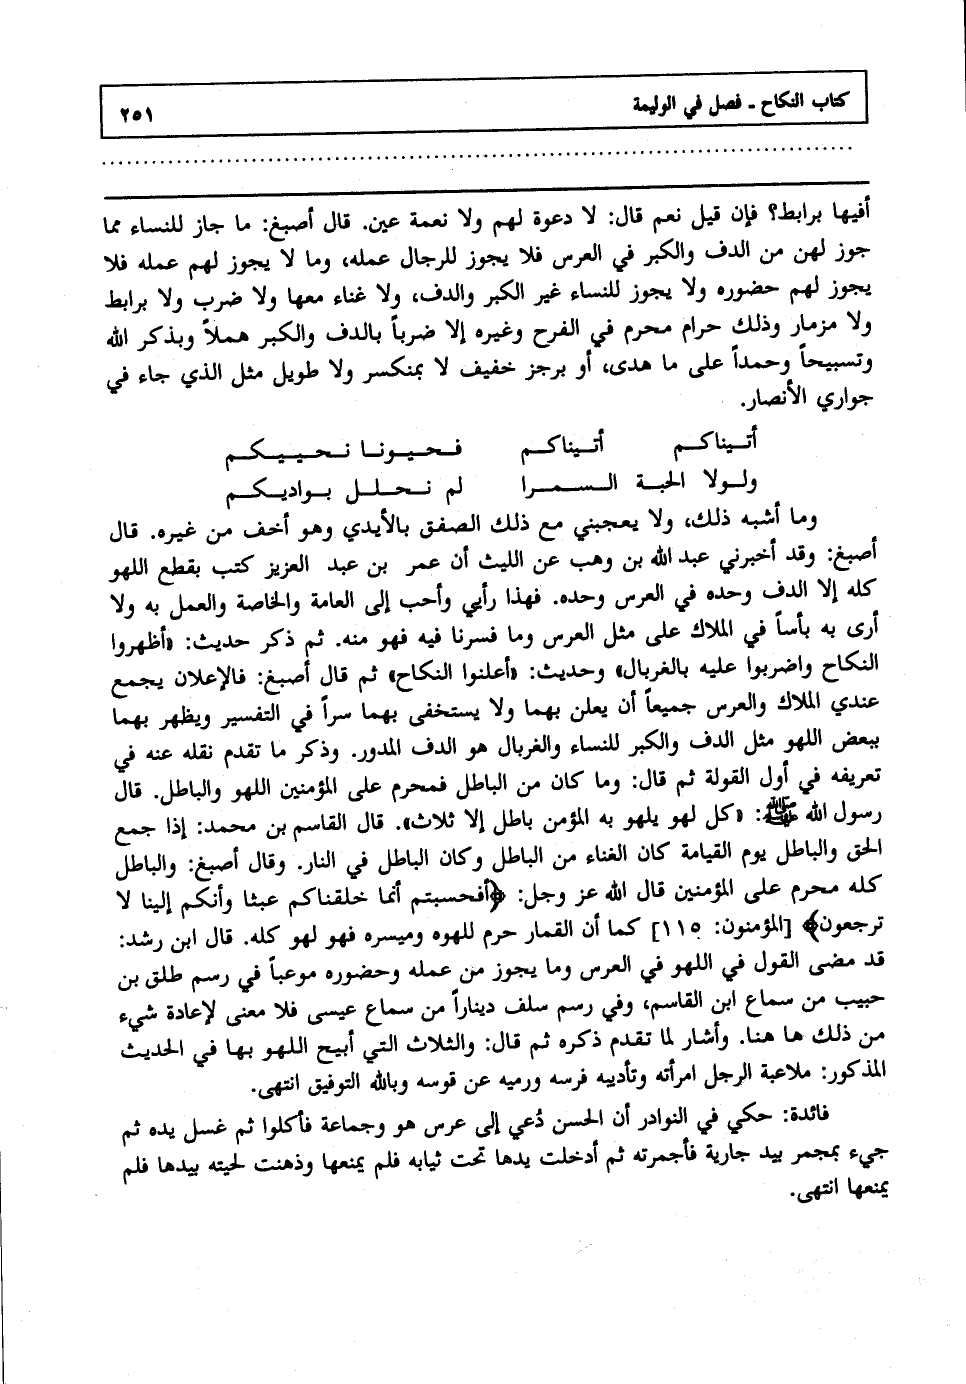 كتاب النكاح ـ فصل في الوليمة
٢٥١
أفيها برابط؟ فإن قيل نعم قال: لا دعوة لهم ولا نعمة عين. قال أصبغ: ما جاز للنساء مما
جوز لهن من الدف والكبر في العرس فلا يجوز للرجال عمله، وما لا يجوز لهم عمله فلا
يجوز لهم حضوره ولا يجوز للنساء غير الكبر والدف، ولا غناء معها ولا ضرب ولا برابط
ولا مزمار وذلك حرام محرم في الفرح وغيره إلا ضرباً بالدف والكبر هملاً وبذكر الله
وتسبيحاً وحمداً على ما هدى، أو برجز خفيف لا بمنكسر ولا طويل مثل الذي جاء في
جواري الأنصار.
أتـيناكـم أتـيناكـم فـحـيـونـا نـحـيـيـكـم
ولـولا الحبـة السـمـرا لم نـحلـل بـواديـكـم
وما أشبه ذلك، ولا يعجبني مع ذلك الصفق بالأيدي وهو أخف من غيره. قال
أصبغ: وقد أخبرني عبد الله بن وهب عن الليث أن عمر بن عبد العزيز كتب بقطع اللهو
كله إلا الدف وحده في العرس وحده. فهذا رأيي وأحب إلى العامة والخاصة والعمل به ولا
أرى به بأساً في الملاك على مثل العرس وما فسرنا فيه فهو منه. ثم ذكر حديث: «أظهروا
النكاح واضربوا عليه بالغربال» وحديث: «أعلنوا النكاح» ثم قال أصبغ: فالإعلان يجمع
عندي الملاك والعرس جميعاً أن يعلن بهما ولا يستخفى بهما سراً في التفسير ويظهر بهما
ببعض اللهو مثل الدف والكبر للنساء والغربال هو الدف المدور. وذكر ما تقدم نقله عنه في
تعريفه في أول القولة ثم قال: وما كان من الباطل فمحرم على المؤمنين اللهو والباطل. قال
رسول الله ﷺ: «كل لهو يلهو به المؤمن باطل إلا ثلاث». قال القاسم بن محمد: إذا جمع
الحق والباطل يوم القيامة كان الغناء من الباطل وكان الباطل في النار. وقال أصبغ: والباطل
كله محرم على المؤمنين قال الله عز وجل: ﴿أفحسبتم أنما خلقناكم عبثا وأنكم إلينا لا
ترجعون﴾ [المؤمنون: ١١٥] كما أن القمار حرم للهوه وميسره فهو لهو كله. قال ابن رشد:
قد مضى القول في اللهو في العرس وما يجوز من عمله وحضوره موعباً في رسم طلق بن
حبيب من سماع ابن القاسم، وفي رسم سلف ديناراً من سماع عيسى فلا معنى لإعادة شيء
من ذلك ها هنا. وأشار لما تقدم ذكره ثم قال: والثلاث التي أبيح اللهو بها في الحديث
المذكور: ملاعبة الرجل امرأته وتأديبه فرسه ورميه عن قوسه وبالله التوفيق انتهى.
فائدة: حكي في النوادر أن الحسن دُعي إلى عرس هو وجماعة فأكلوا ثم غسل يده ثم
جيء بمجمر بيد جارية فأجمرته ثم أدخلت يدها تحت ثيابه فلم يمنعها وذهنت لحيته بيدها فلم
يمنعها انتهى.